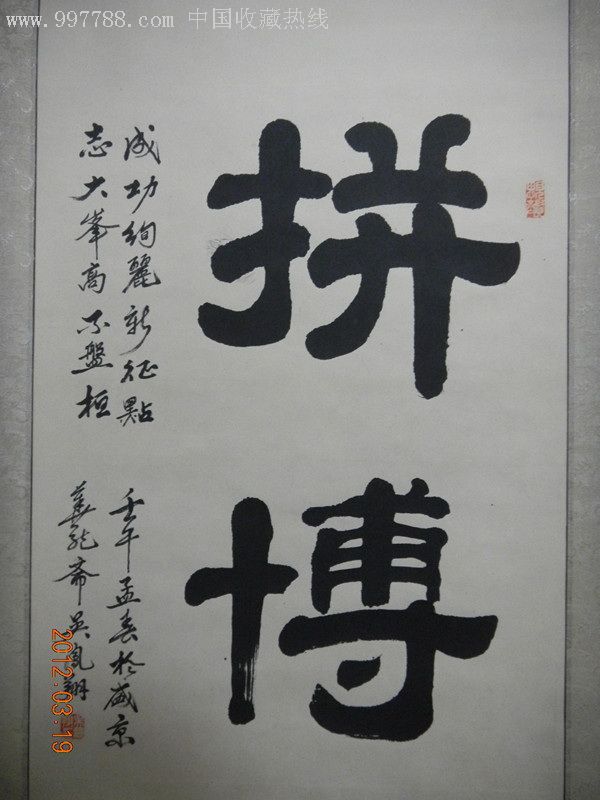 www.997788.com 中国收藏热线
拼博
成功絢麗新征點
志大峯高不盤桓
壬午孟春於盛京
龍斋吳鳳翔
2012.03.19